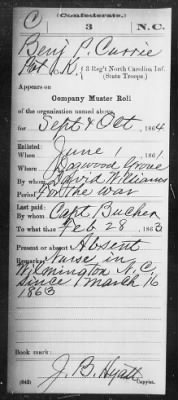 C (Confederate.)
3 N.C.
Benj P. Currie
Pvt Co K. { 3 Reg't North Carolina Inf.
(State Troops.)
Appears on
Company Muster Roll
of the organization named above,
for Sept & Oct, 1864
Enlisted:
When June 1, 1861
Where Dogwood Grove
By whom David Williams
Period For the war
Last paid:
By whom Capt. Bucher
To what time Feb 28, 1863
Present or absent Absent
Remarks: Nurse in
Wilmington N.C.
since March 16
1863
Book mark:
J. B. Hyatt
(642) Copyist.